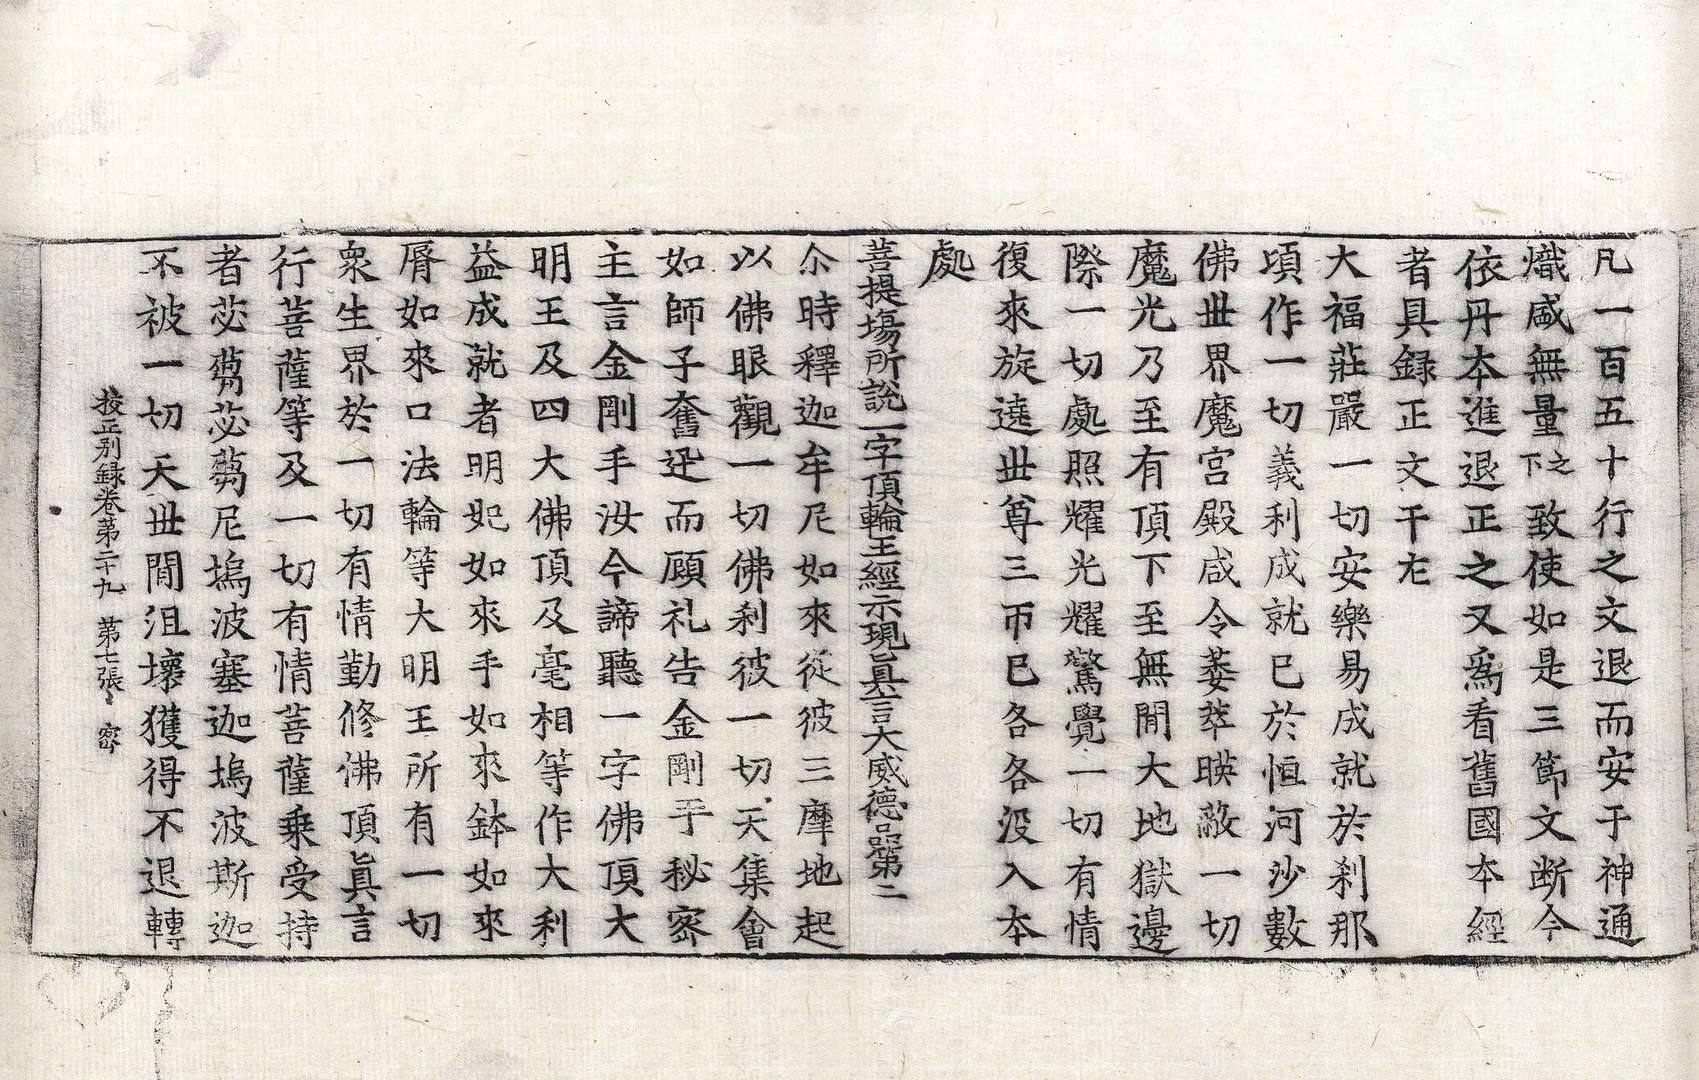 凡一百五十行之文退而安于神通
熾盛無量之下致使如是三節文断今
依丹本進退正之又為看舊國本經
者具録正文于左
大福莊嚴一切安樂易成就於刹那
頃作一切義利成就已於恒河沙數
佛丗界魔宫殿咸令萎萃暎蔽一切
魔光乃至有頂下至無閒大地獄邊
際一切處照耀光耀驚覺一切有情
復來旋遶丗尊三帀已各各没入本
處
菩提場所説一字頂輪王經示現真言大威德品第二
尒時釋迦牟尼如來從彼三摩地起
以佛眼觀一切佛刹彼一切天集會
如師子奮迅而顧礼告金剛手秘密
主言金剛手汝今諦聽一字佛頂大
明王及四大佛頂及毫相等作大利
益成就者明妃如來手如來鉢如來
脣如來口法輪等大明王所有一切
衆生界於一切有情勤修佛頂真言
行菩薩等及一切有情菩薩乘受持
者苾蒭苾蒭尼塢波塞迦塢波斯迦
不被一切天丗閒沮壞獲得不退轉
校正别録卷第二十九 第七張 密